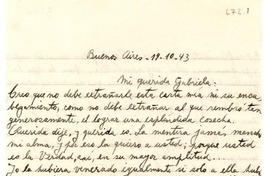 672.1
Buenos Aires - 19.10.43
Mi querida Gabriela:
Creo que no debe extrañarle esta carta mía ni su enca
bezamiento, como no debe extrañar al que siembra tan
generosamente, el lograr una espléndida cosecha.
Querida dije, y querida es. La mentira jamás manchó
mi alma, y por eso la quiero a usted; porque usted
es la Verdad, así, en su mayor amplitud...
Yo la hubiera venerado igualmente si solo a ella hub